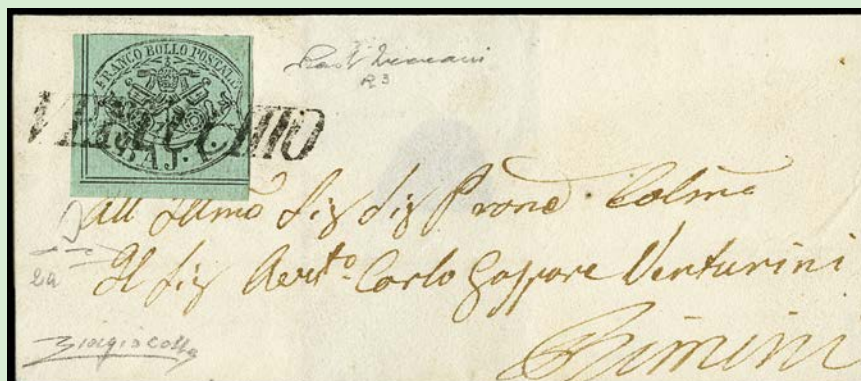 FRANCO BOLLO POSTALE
BAJ. 1.
VERUCCHIO
R3
All Illmo Sig Sig Prone Colmo
Il Sig Carlo Gaspare Venturini
Rimini